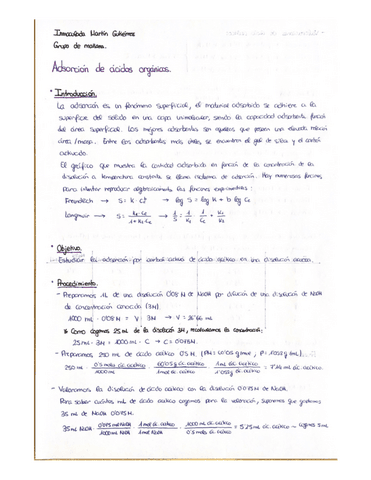 Inmaculada Martín Gutiérrez
Grupo de mañana.
Adsorción de ácidos orgánicos.
* Introducción.
La adsorción es un fenómeno superficial, el material adsorbido se adhiere a la
superficie del sólido en una capa unimolecular, siendo la capacidad adsorbente función
del área superficial. Los mejores adsorbentes son aquellos que poseen una elevada relación
área/masa. Entre los adsorbentes más útiles, se encuentran el gel de sílice y el carbón
activado.
El gráfico que muestra la cantidad adsorbida en función de la concentración de la
disolución a temperatura constante se llama isoterma de adsorción. Hay numerosas funciones
para intentar reproducir algebraicamente las funciones experimentales:
Freundlich → S = k · C → log S = log k + b log C
Langmuir → S =
* Objetivo.
- Estudiar la adsorción por carbón activo de ácido acético en una disolución acuosa.
* Procedimiento.
- Preparamos 1L de una disolución 0'08 N de NaOH por dilución de una disolución de NaOH
de concentración conocida (3N).
1000 mL · 0'08 N = V · 3N → V = 26'66 mL
* Como cogemos 25 mL de la disolución 3N, recalculamos la concentración:
25 mL · 3N = 1000 mL · C → C = 0'075 N.
- Preparamos 250 mL de ácido acético 0'5 N.
250 mL · 0'5 mols ác. acético / 1000 mL
- Valoramos la disolución de ácido acético con la disolución 0'075 N de NaOH.
Para saber cuántos mL de ácido acético cogemos para la valoración, suponemos que gastamos
35 mL de NaOH 0'075 N.
35 mL NaOH · 0'075 mol NaOH / 1000 mL NaOH · 1 mol ác. acético / 1 mol NaOH · 1000 mL ác. acético / 0'5 mols ác. acético = 5'25 mL ác. acético → cogemos 5 mL